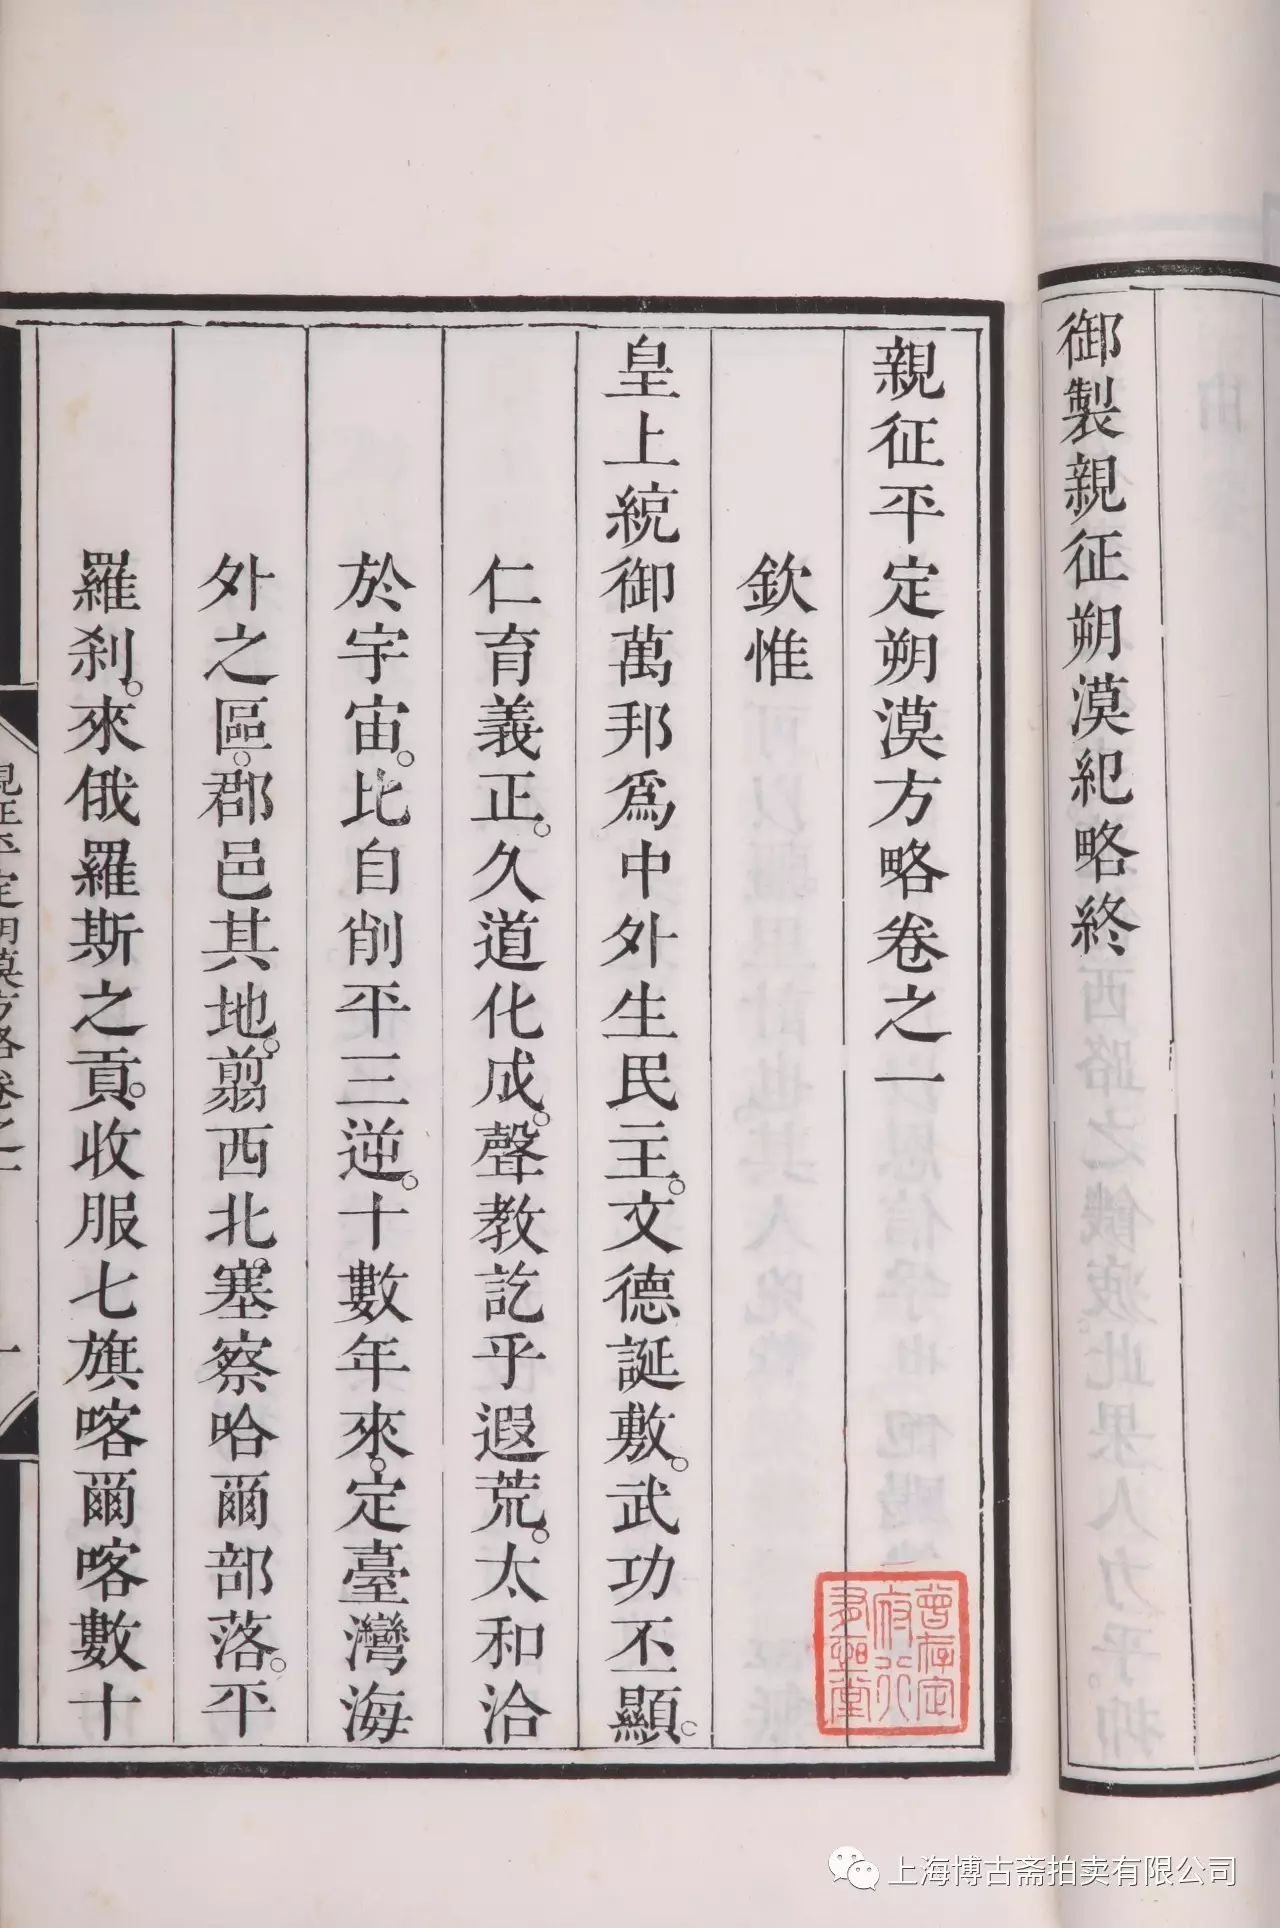 御製親征朔漠紀略終
親征平定朔漠方略卷之一
欽惟
皇上統御萬邦爲中外生民主。文德誕敷。武功丕顯。
仁育義正。久道化成。聲教訖乎遐荒。太和洽
於宇宙。比自削平三逆。十數年來。定臺灣海
外之區。郡邑其地。翦西北塞察哈爾部落。平
羅刹。來俄羅斯之貢。收服七旗喀爾喀數十
親征平定朔漠方略卷之一
一
上海博古斋拍卖有限公司